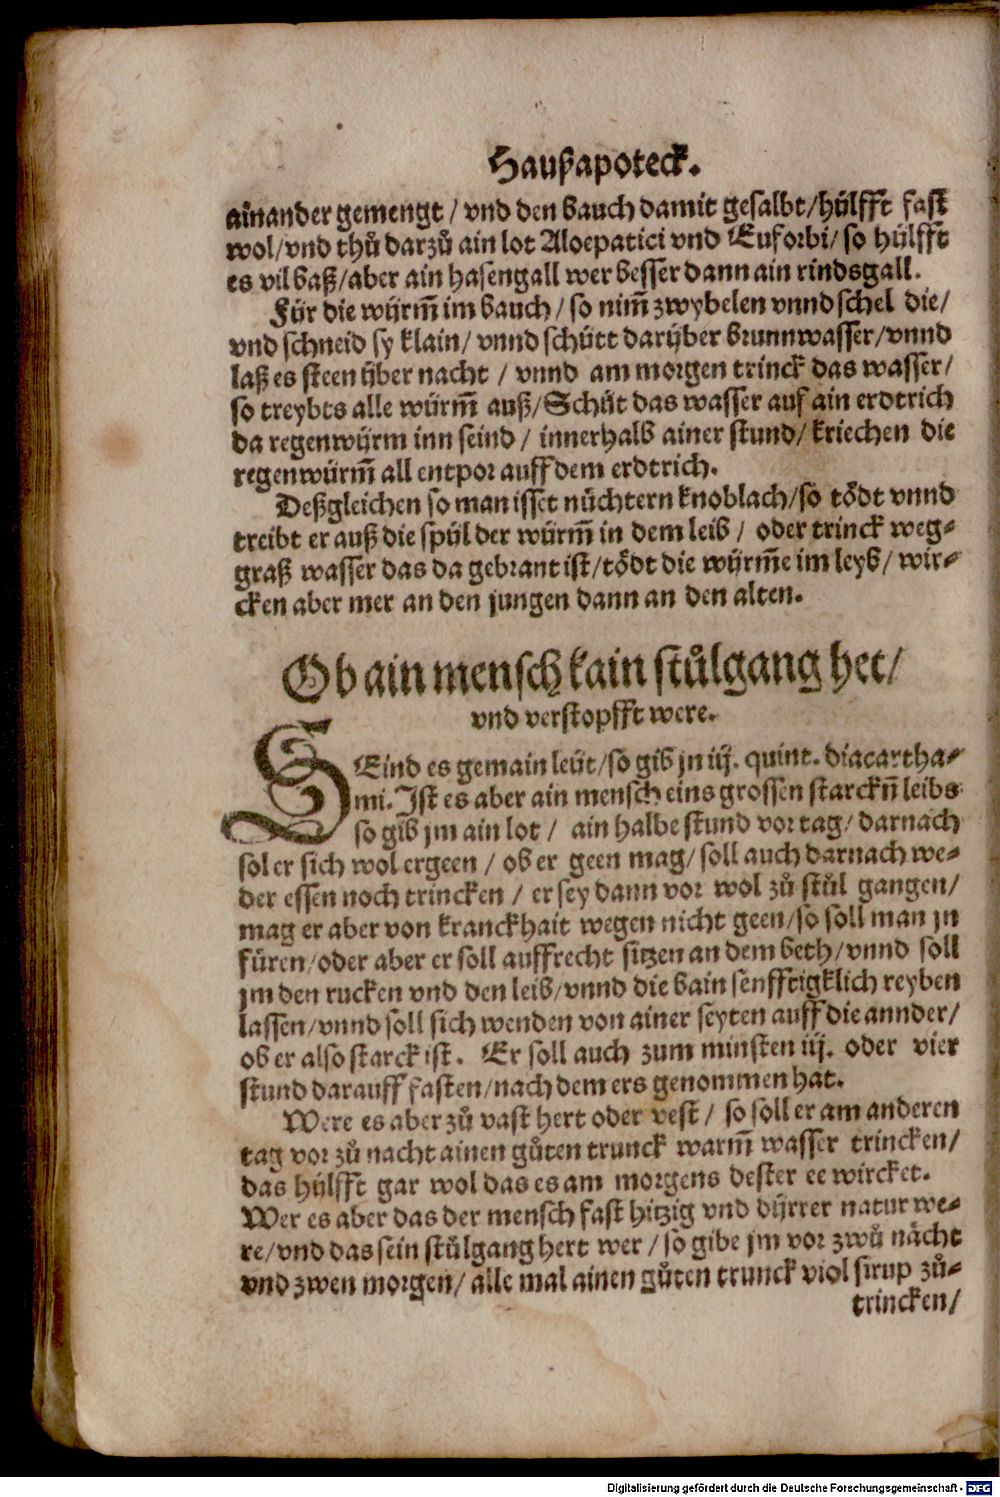 Haußapoteck.
ainander gemengt / vnd den bauch damit gesalbt/hülfft fast
wol/vnd thů darzů ain lot Aloepatici vnd Euforbi/ so hülfft
es vil baß/aber ain hasengall wer besser dann ain rindsgall.
Für die würm̃ im bauch / so nim̃ zwybelen vnnd schel die/
vnd schneid sy klain/ vnnd schütt darüber brunnwasser/vnnd
laß es steen über nacht / vnnd am morgen trinck das wasser/
so treybts alle würm̃ auß/Schüt das wasser auf ain erdtrich
da regenwürm inn seind / innerhalb ainer stund/ kriechen die
regenwürm̃ all entpor auff dem erdtrich.
Deßgleichen so man isset nüchtern knoblach/so tödt vnnd
treibt er auß die spül der würm̃ in dem leib / oder trinck weg-
graß wasser das da gebrant ist/tödt die würm̃e im leyb/ wir-
cken aber mer an den jungen dann an den alten.
Ob ain mensch kain stůlgang het/
vnd verstopfft were.
SEind es gemain leüt/so gib jn iij. quint. diacartha-
mi. Ist es aber ain mensch eins grossen starckñ leibs
so gib jm ain lot / ain halbe stund vor tag/ darnach
sol er sich wol ergeen / ob er geen mag/ soll auch darnach we-
der essen noch trincken / er sey dann vor wol zů stůl gangen/
mag er aber von kranckhait wegen nicht geen/so soll man jn
füren/oder aber er soll auffrecht sitzen an dem beth/vnnd soll
jm den rucken vnd den leib/vnnd die bain senfftigklich reyben
lassen/vnnd soll sich wenden von ainer seyten auff die annder/
ob er also starck ist. Er soll auch zum minsten iij. oder vier
stund darauff fasten/nach dem ers genommen hat.
Were es aber zů vast hert oder vest / so soll er am anderen
tag vor zů nacht ainen gůten trunck warm̃ wasser trincken/
das hülfft gar wol das es am morgens dester ee wircket.
Wer es aber das der mensch fast hitzig vnd dürrer natur we-
re/vnd das sein stůlgang hert wer / so gibe jm vor zwů nächt
vnd zwen morgen/ alle mal ainen gůten trunck viol sirup zů-
trincken/
Digitalisierung gefördert durch die Deutsche Forschungsgemeinschaft - DFG